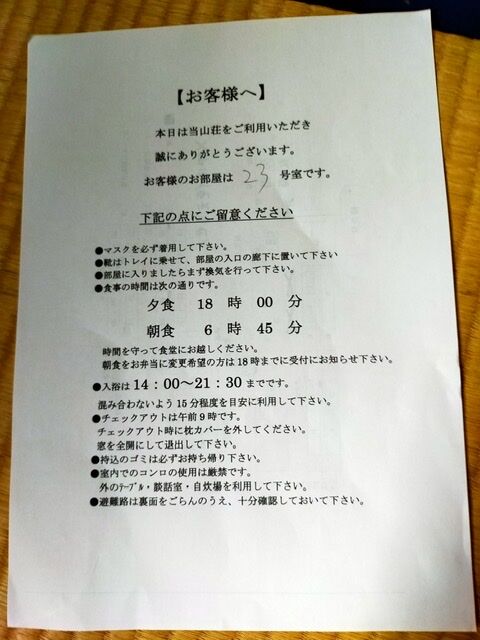 【お客様へ】
本日は当山荘をご利用いただき
誠にありがとうございます。
お客様のお部屋は 23 号室です。
下記の点にご留意ください
●マスクを必ず着用して下さい。
●靴はトレイに乗せて、部屋の入口の廊下に置いて下さい
●部屋に入りましたらまず換気を行って下さい。
●食事の時間は次の通りです。
夕食 18 時 00 分
朝食 6 時 45 分
時間を守って食堂にお越しください。
朝食をお弁当に変更希望の方は18時までに受付にお知らせ下さい。
●入浴は14:00〜21:30までです。
混み合わないよう15分程度を目安に利用して下さい。
●チェックアウトは午前9時です。
チェックアウト時に枕カバーを外してください。
窓を全開にして退出して下さい。
●持込のゴミは必ずお持ち帰り下さい。
●室内でのコンロの使用は厳禁です。
外のﾃｰﾌﾞﾙ・談話室・自炊場を利用して下さい。
●避難路は裏面をごらんのうえ、十分確認しておいて下さい。